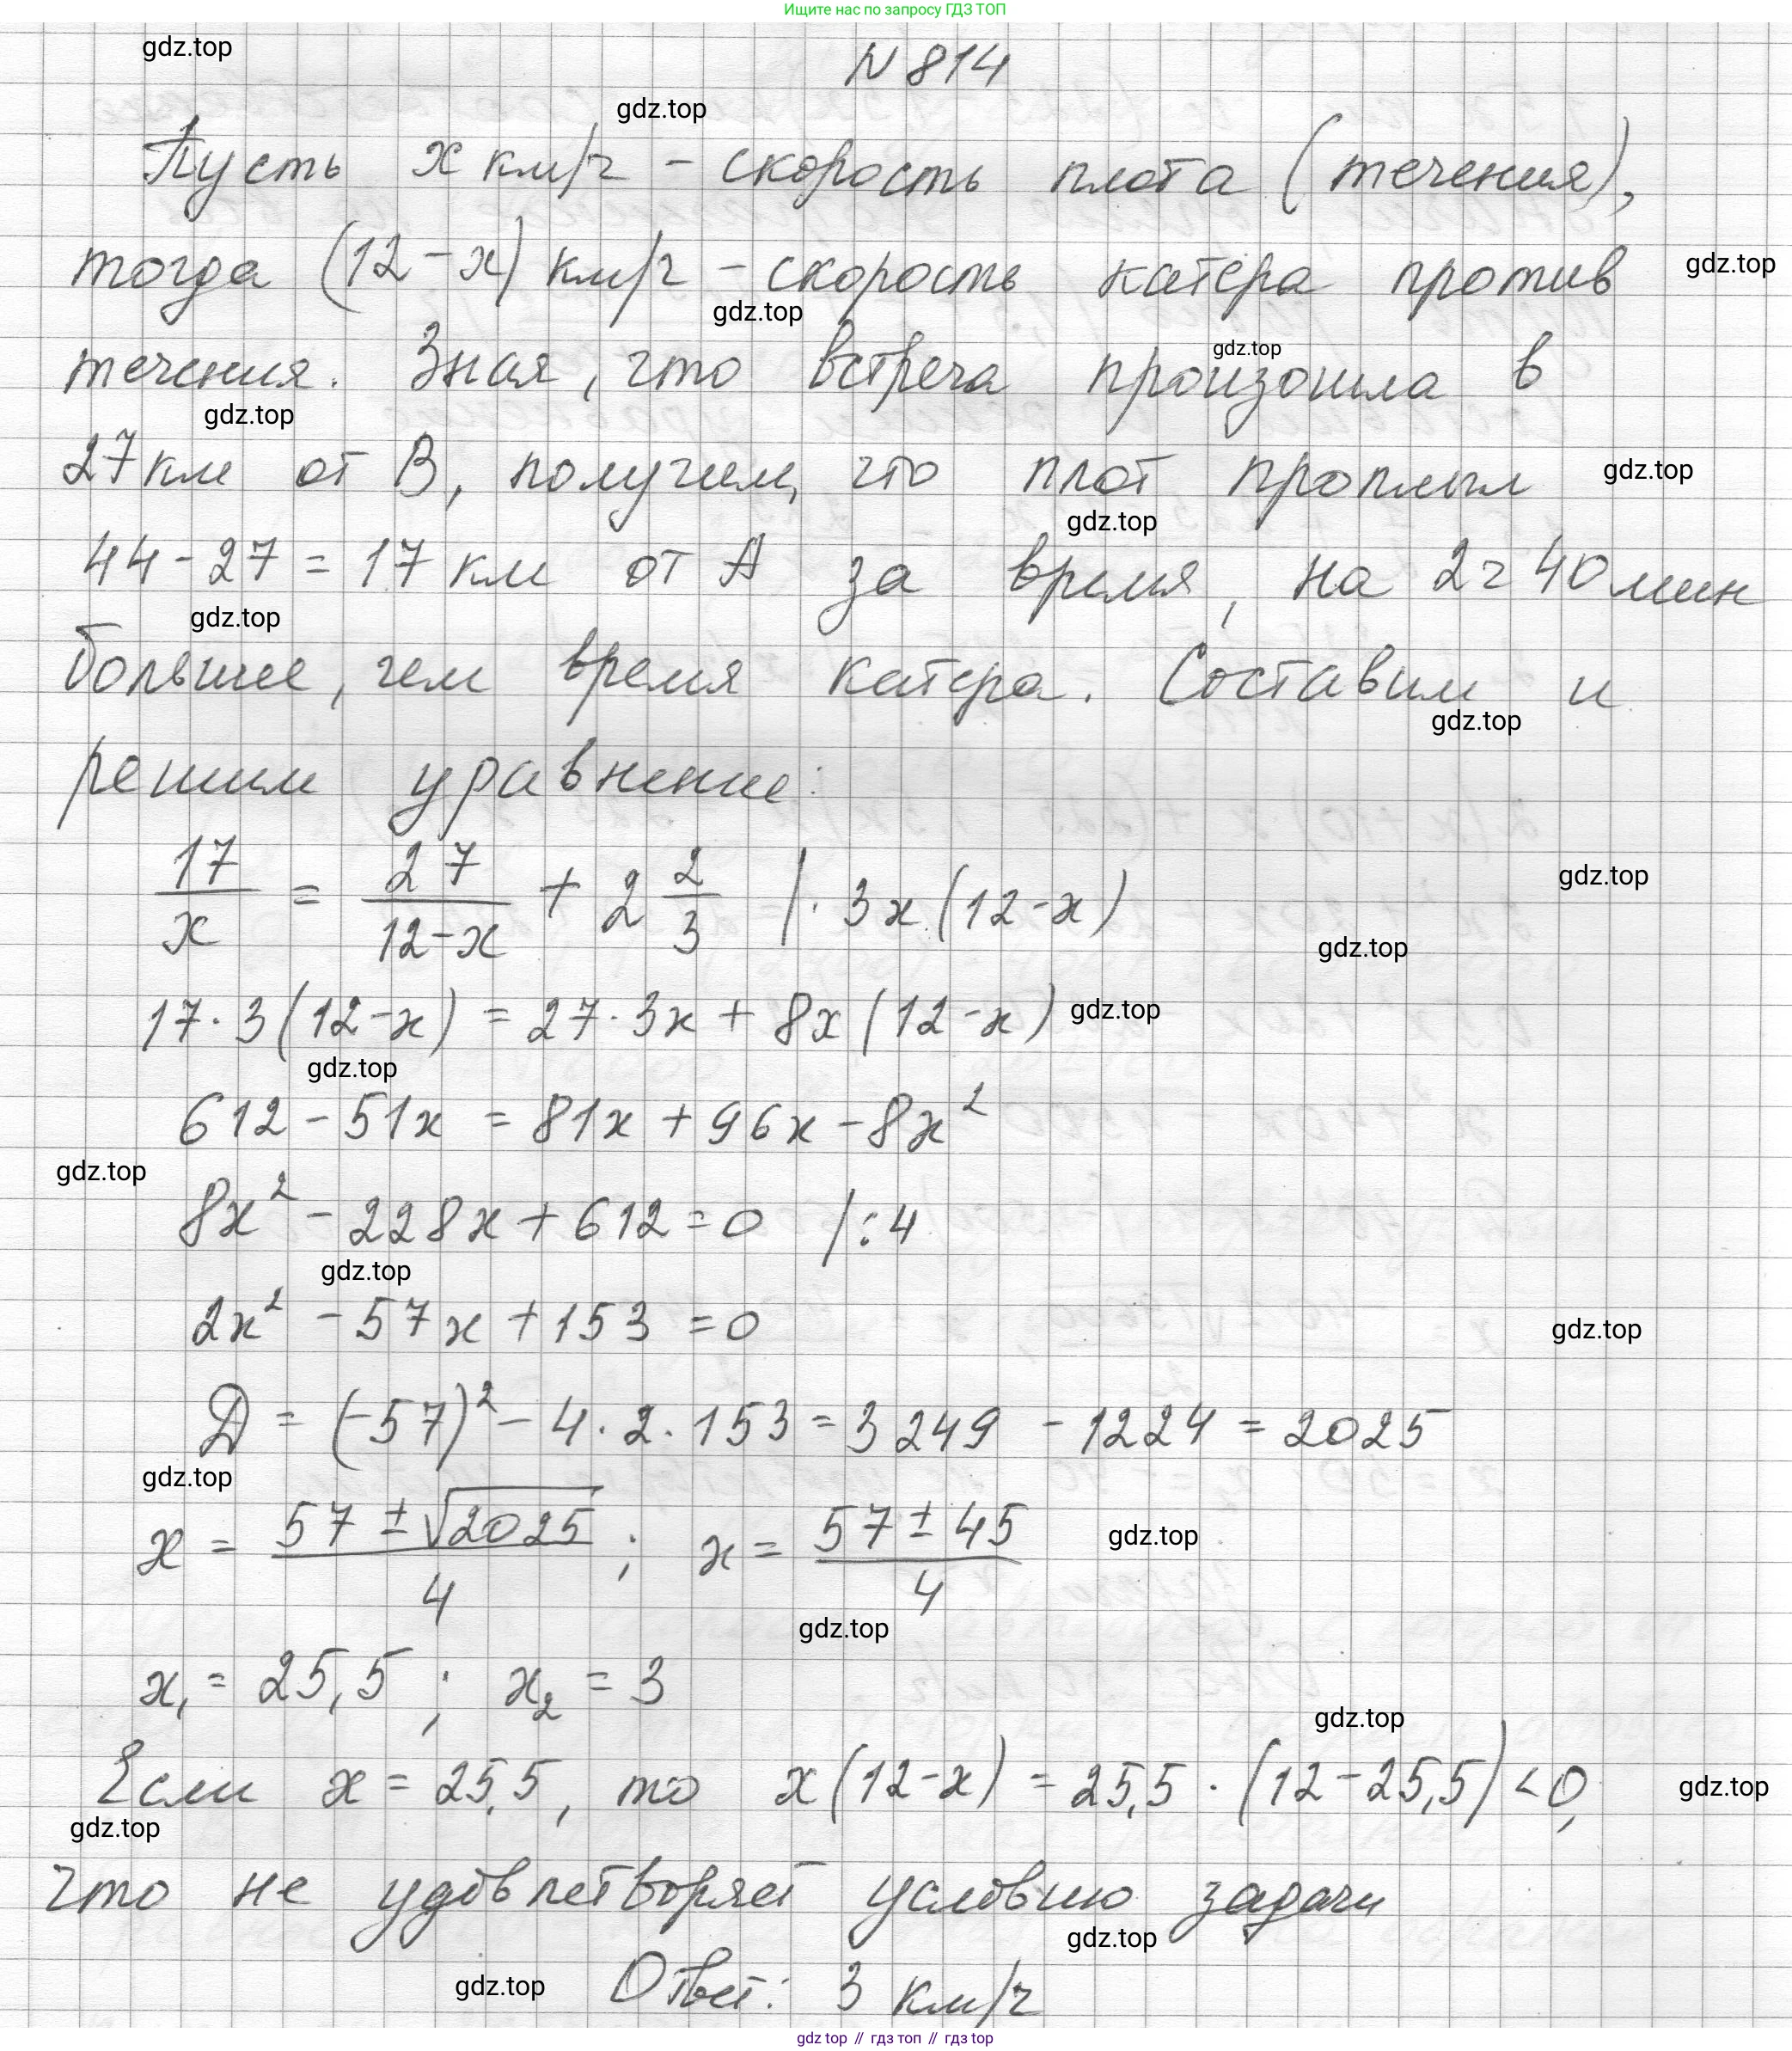 Ищите нас по запросу ГДЗ ТОП
gdz.top
N 814
gdz.top
Пусть x км/ч - скорость плота (течения),
тогда (12-x) км/ч - скорость катера против
gdz.top
gdz.top
течения. Зная, что встреча произошла в
gdz.top
gdz.top
27 км от В, получим, что плот проплыл
gdz.top
gdz.top
44-27=17 км от А за время, на 2ч 40 мин
gdz.top
больше, чем время катера. Составим и
gdz.top
решим уравнение:
17/x = 27/(12-x) + 2 2/3 | · 3x(12-x)
gdz.top
gdz.top
17·3(12-x) = 27·3x + 8x(12-x)
gdz.top
gdz.top
612-51x = 81x+96x-8x²
gdz.top
8x²-228x+612=0 /:4
gdz.top
2x²-57x+153=0
gdz.top
D = (-57)²-4·2·153=3249-1224=2025
gdz.top
x = (57±√2025)/4; x = (57±45)/4
gdz.top
gdz.top
x₁ = 25,5; x₂ = 3
gdz.top
Если x = 25,5, то x(12-x) = 25,5·(12-25,5)<0,
gdz.top
gdz.top
что не удовлетворяет условию задачи
gdz.top
Ответ: 3 км/ч
gdz.top
gdz top // гдз топ // гдз top